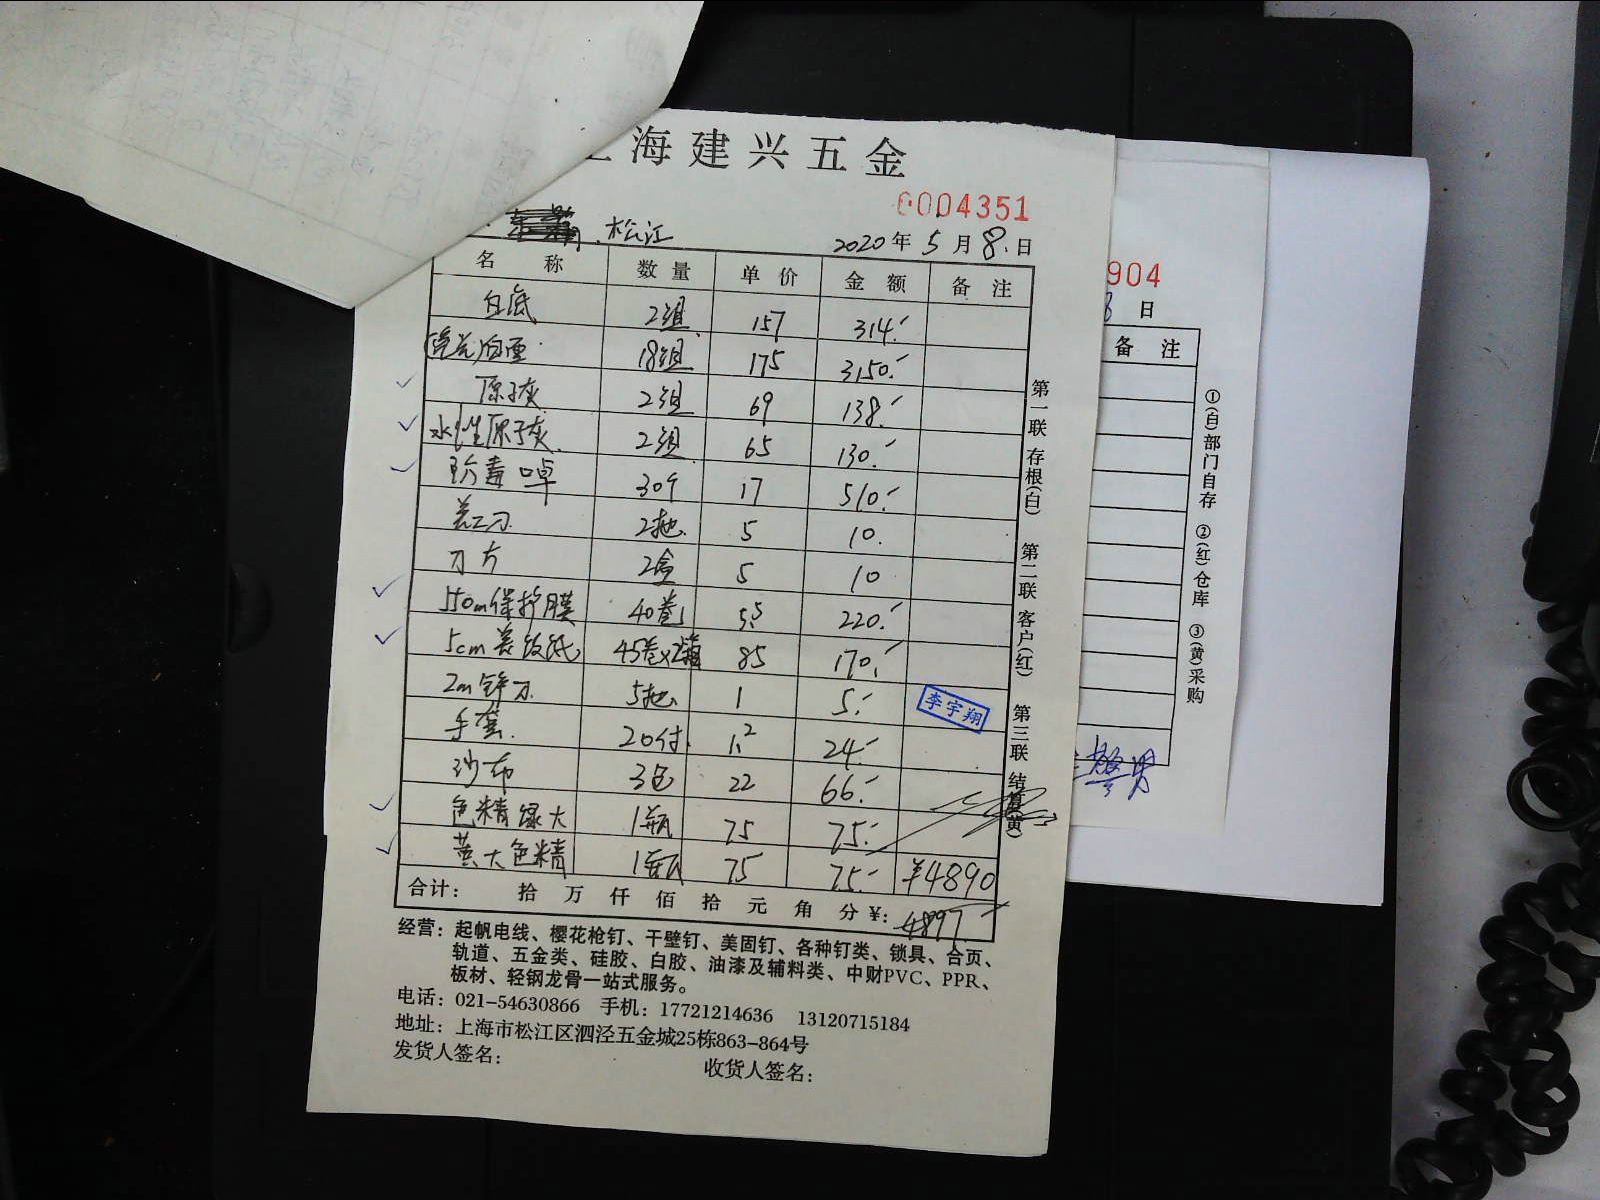 上海建兴五金
0004351
松江 2020年5月8日
名称 数量 单价 金额 备注
白底 2组 157 314.-
白面 18组 175 3150.-
原子灰 2组 69 138.-
水性原子灰 2组 65 130.-
防毒口罩 30个 17 510.-
美工刀 2把 5 10.
刀片 2盒 5 10
550m保护膜 40卷 5.5 220.-
5cm美纹纸 45卷x2箱 85 170.-
2m铲刀 5把 1 5.-
李宇翔
手套 20付 1.2 24.-
沙布 3包 22 66.-
色精绿大 1瓶 75 75.-
黄大色精 1瓶 75 75.- ¥4890
合计: 拾 万 仟 佰 拾 元 角 分 ¥: 4897
第一联 存根(白) 第二联 客户(红) 第三联 结算(黄)
经营: 起帆电线、樱花枪钉、干壁钉、美固钉、各种钉类、锁具、合页、
轨道、五金类、硅胶、白胶、油漆及辅料类、中财PVC、PPR、
板材、轻钢龙骨一站式服务。
电话: 021-54630866 手机: 17721214636 13120715184
地址: 上海市松江区泗泾五金城25栋863-864号
发货人签名: 收货人签名:
904
日
备注
①(白)部门自存 ②(红)仓库 ③(黄)采购